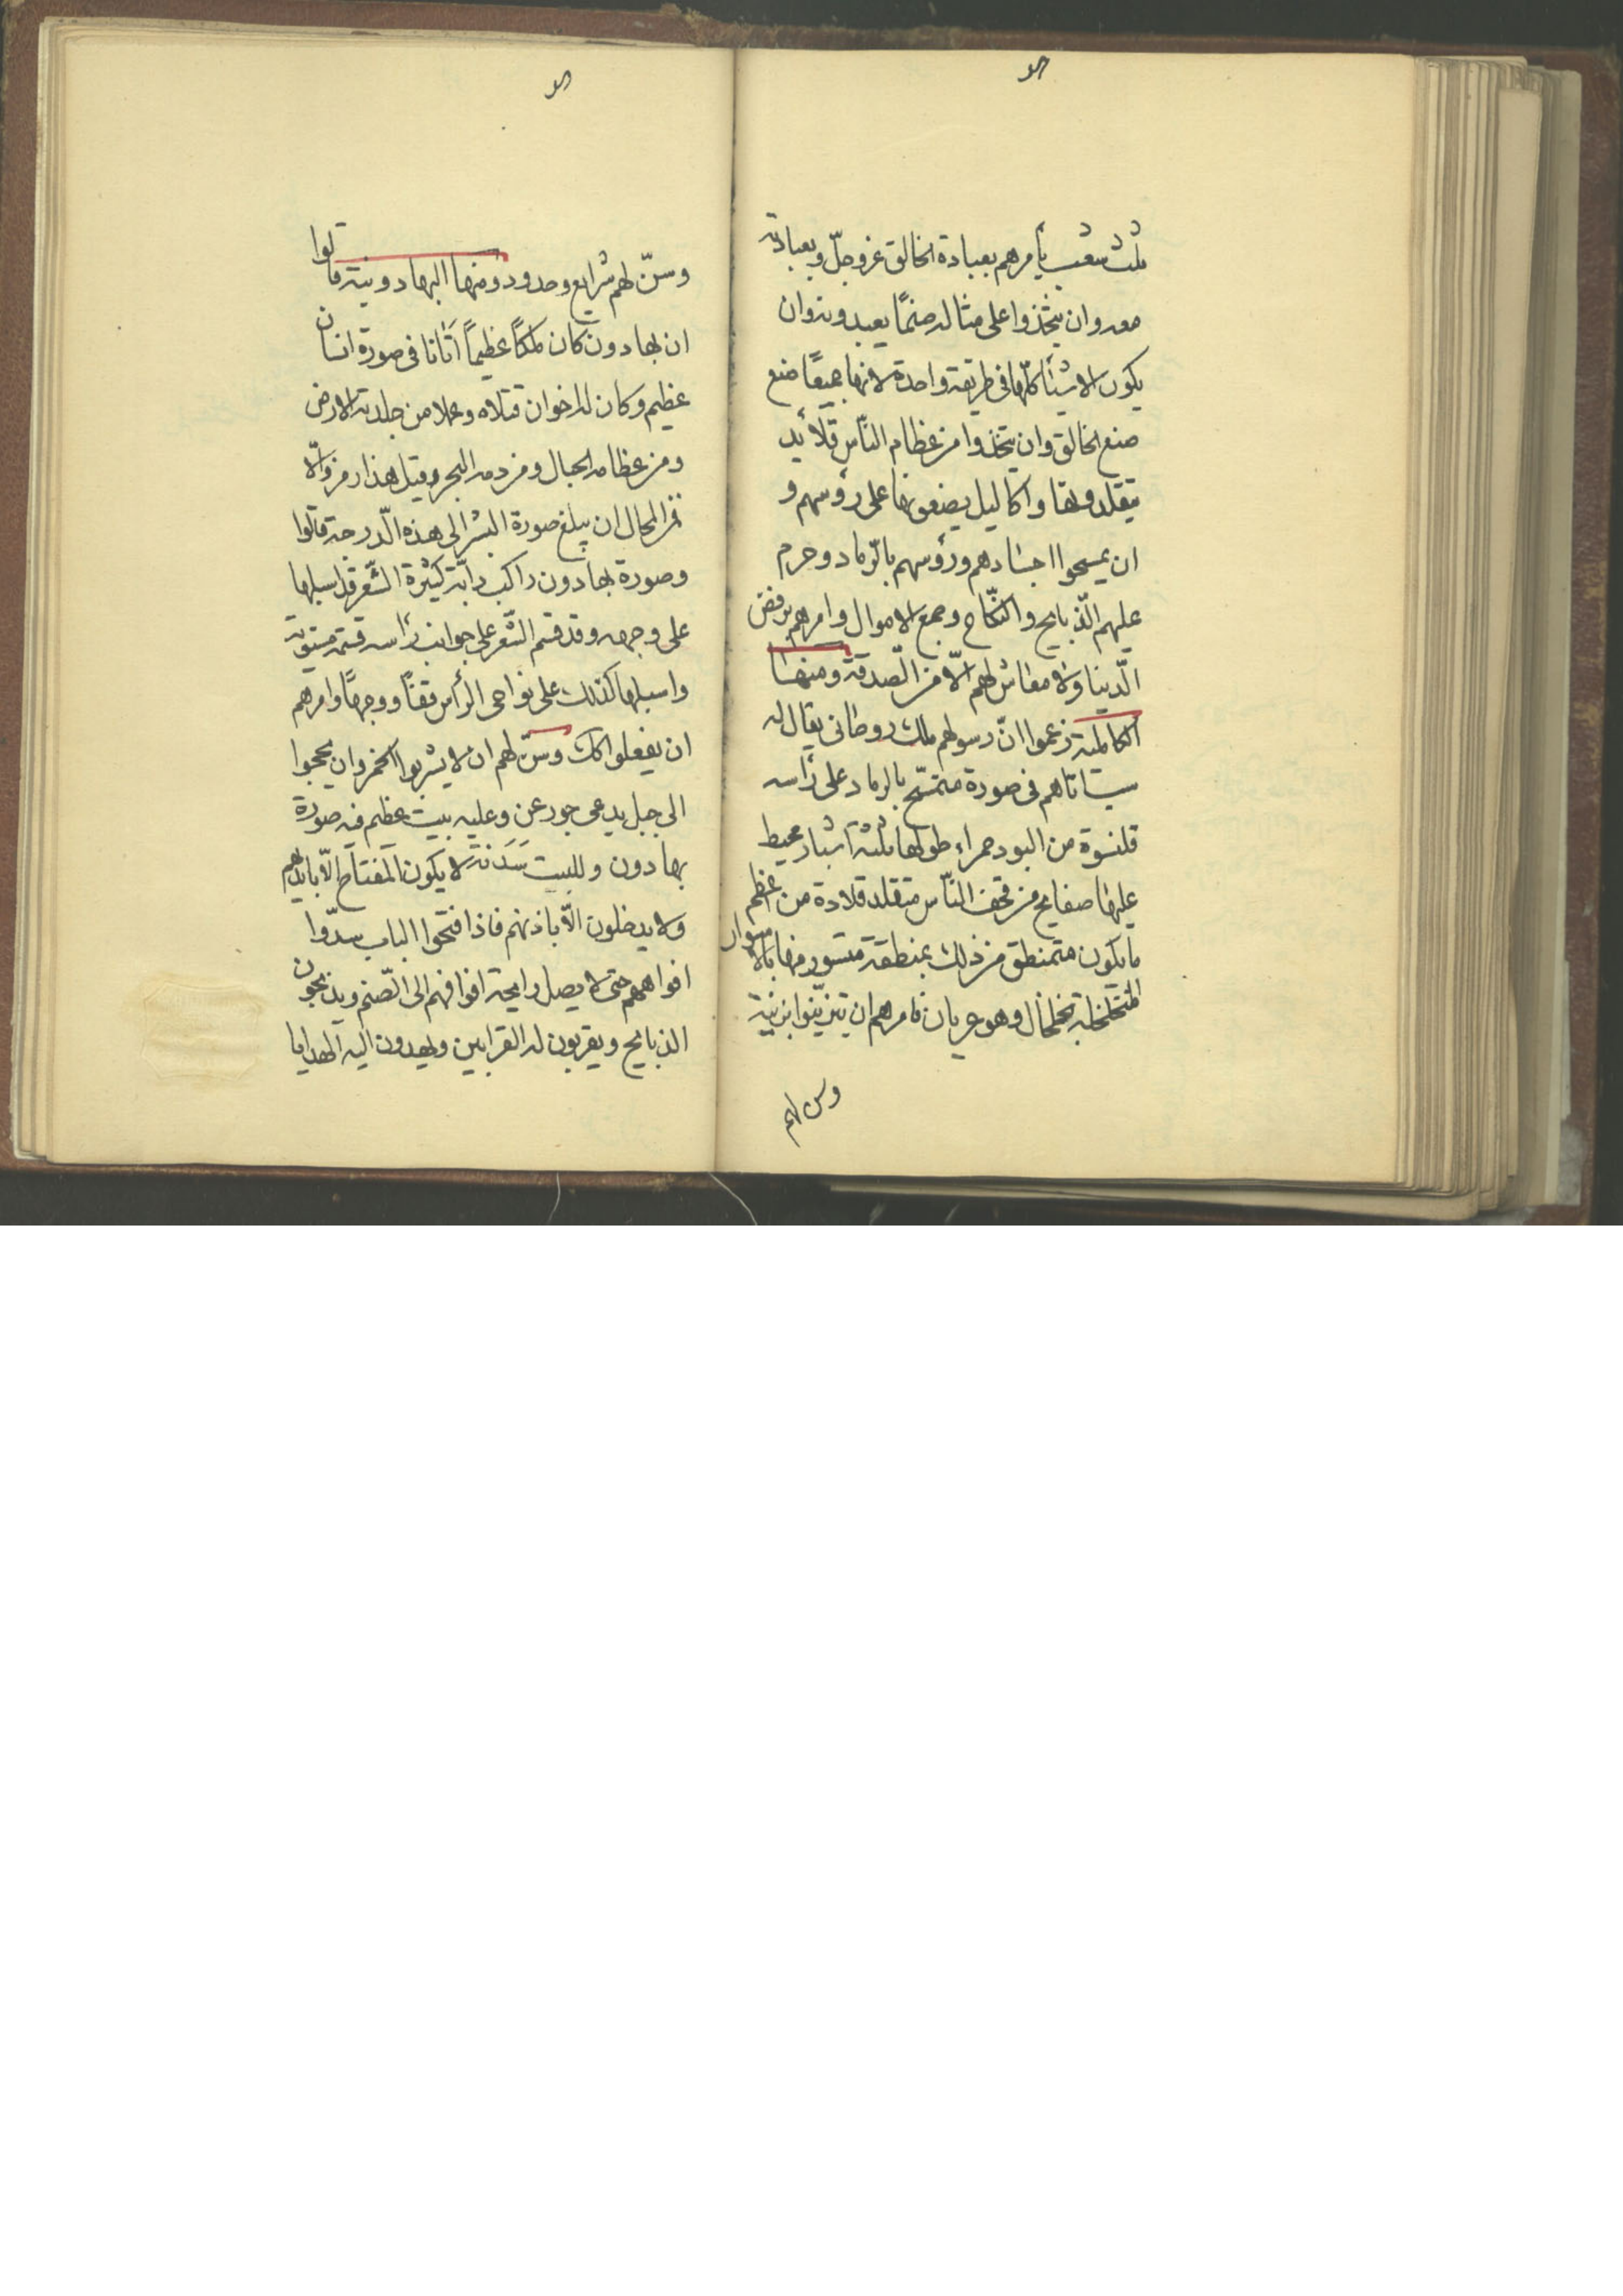 ثلث شعب يأمرهم بعبادة الخالق عز وجلّ وبعبادته
معه وان يتخذوا على مثاله صنمًا يعبدونه وان
يكون الاشيأ كلّها فى طريقة واحدة لانها جميعًا صنع
صنع الخالق وان يتخذوا من عظام النّاس قلأيد
يتقلدونها واكاليل يضعونها على رؤسهم و
ان يمسحوا اجسادهم ورؤسهم بالرّماد وحرم
عليهم الذّبايح والنّكاح وجمع الاموال وامرهم برفض
الدّنيا ولا معاش لهم الّا من الصّدقة ومنها
الكابلية زعموا انّ رسولهم ملك روحانى يقال له
شب اتاهم فى صورة متمسّح بالرماد على رأسه
قلنسوة من البود حمراء طولها ثلثة اشبار محيط
عليها صفايح من قحف النّاس متقلد قلادة من اعظم
ما يكون متمنطق من ذلك بمنطقة متسور منها بالاسوار
المتخلخلة بخلخال وهو عريان فامرهم ان يتزيّنوا بزينته
وسن لهم
وسنّ لهم شرايع وحدود ومنها البهادونية قالوا
ان بهادون كان ملكًا عظيمًا أتانا فى صورة انسان
عظيم وكان له اخوان قتلاه وعملا من جلدته الارض
ومن عظامه الجبال ومن دمه البحر وقيل هذا رمز والّا
فمن المحال ان يبلغ صورة البشر الى هذه الدّرجة قالوا
وصورة بهادون راكب دابّة كثيرة الشّعر قد اسبلها
على وجهه وقد قسم الشّعر على جوانب رأسه قسمة مستوية
واسبلها كذلك على نواحى الرأس قفأ ووجهًا وامرهم
ان يفعلوا كك وسنّ لهم ان لا يشربوا الخمر وان يحجوا
الى جبل يدعى جورعن وعليه بيت عظيم فيه صورة
بهادون وللبيت سَدَنة لا يكون المفتاح الّا بايديهم
ولا يدخلون الّا باذنهم فاذا فتحوا الباب سدّوا
افواههم حتى لا يصل رايحة افواههم الى الصّنم ويذبحون
الذبايح ويقربون له القرابين ويهدون اليه الهدايا